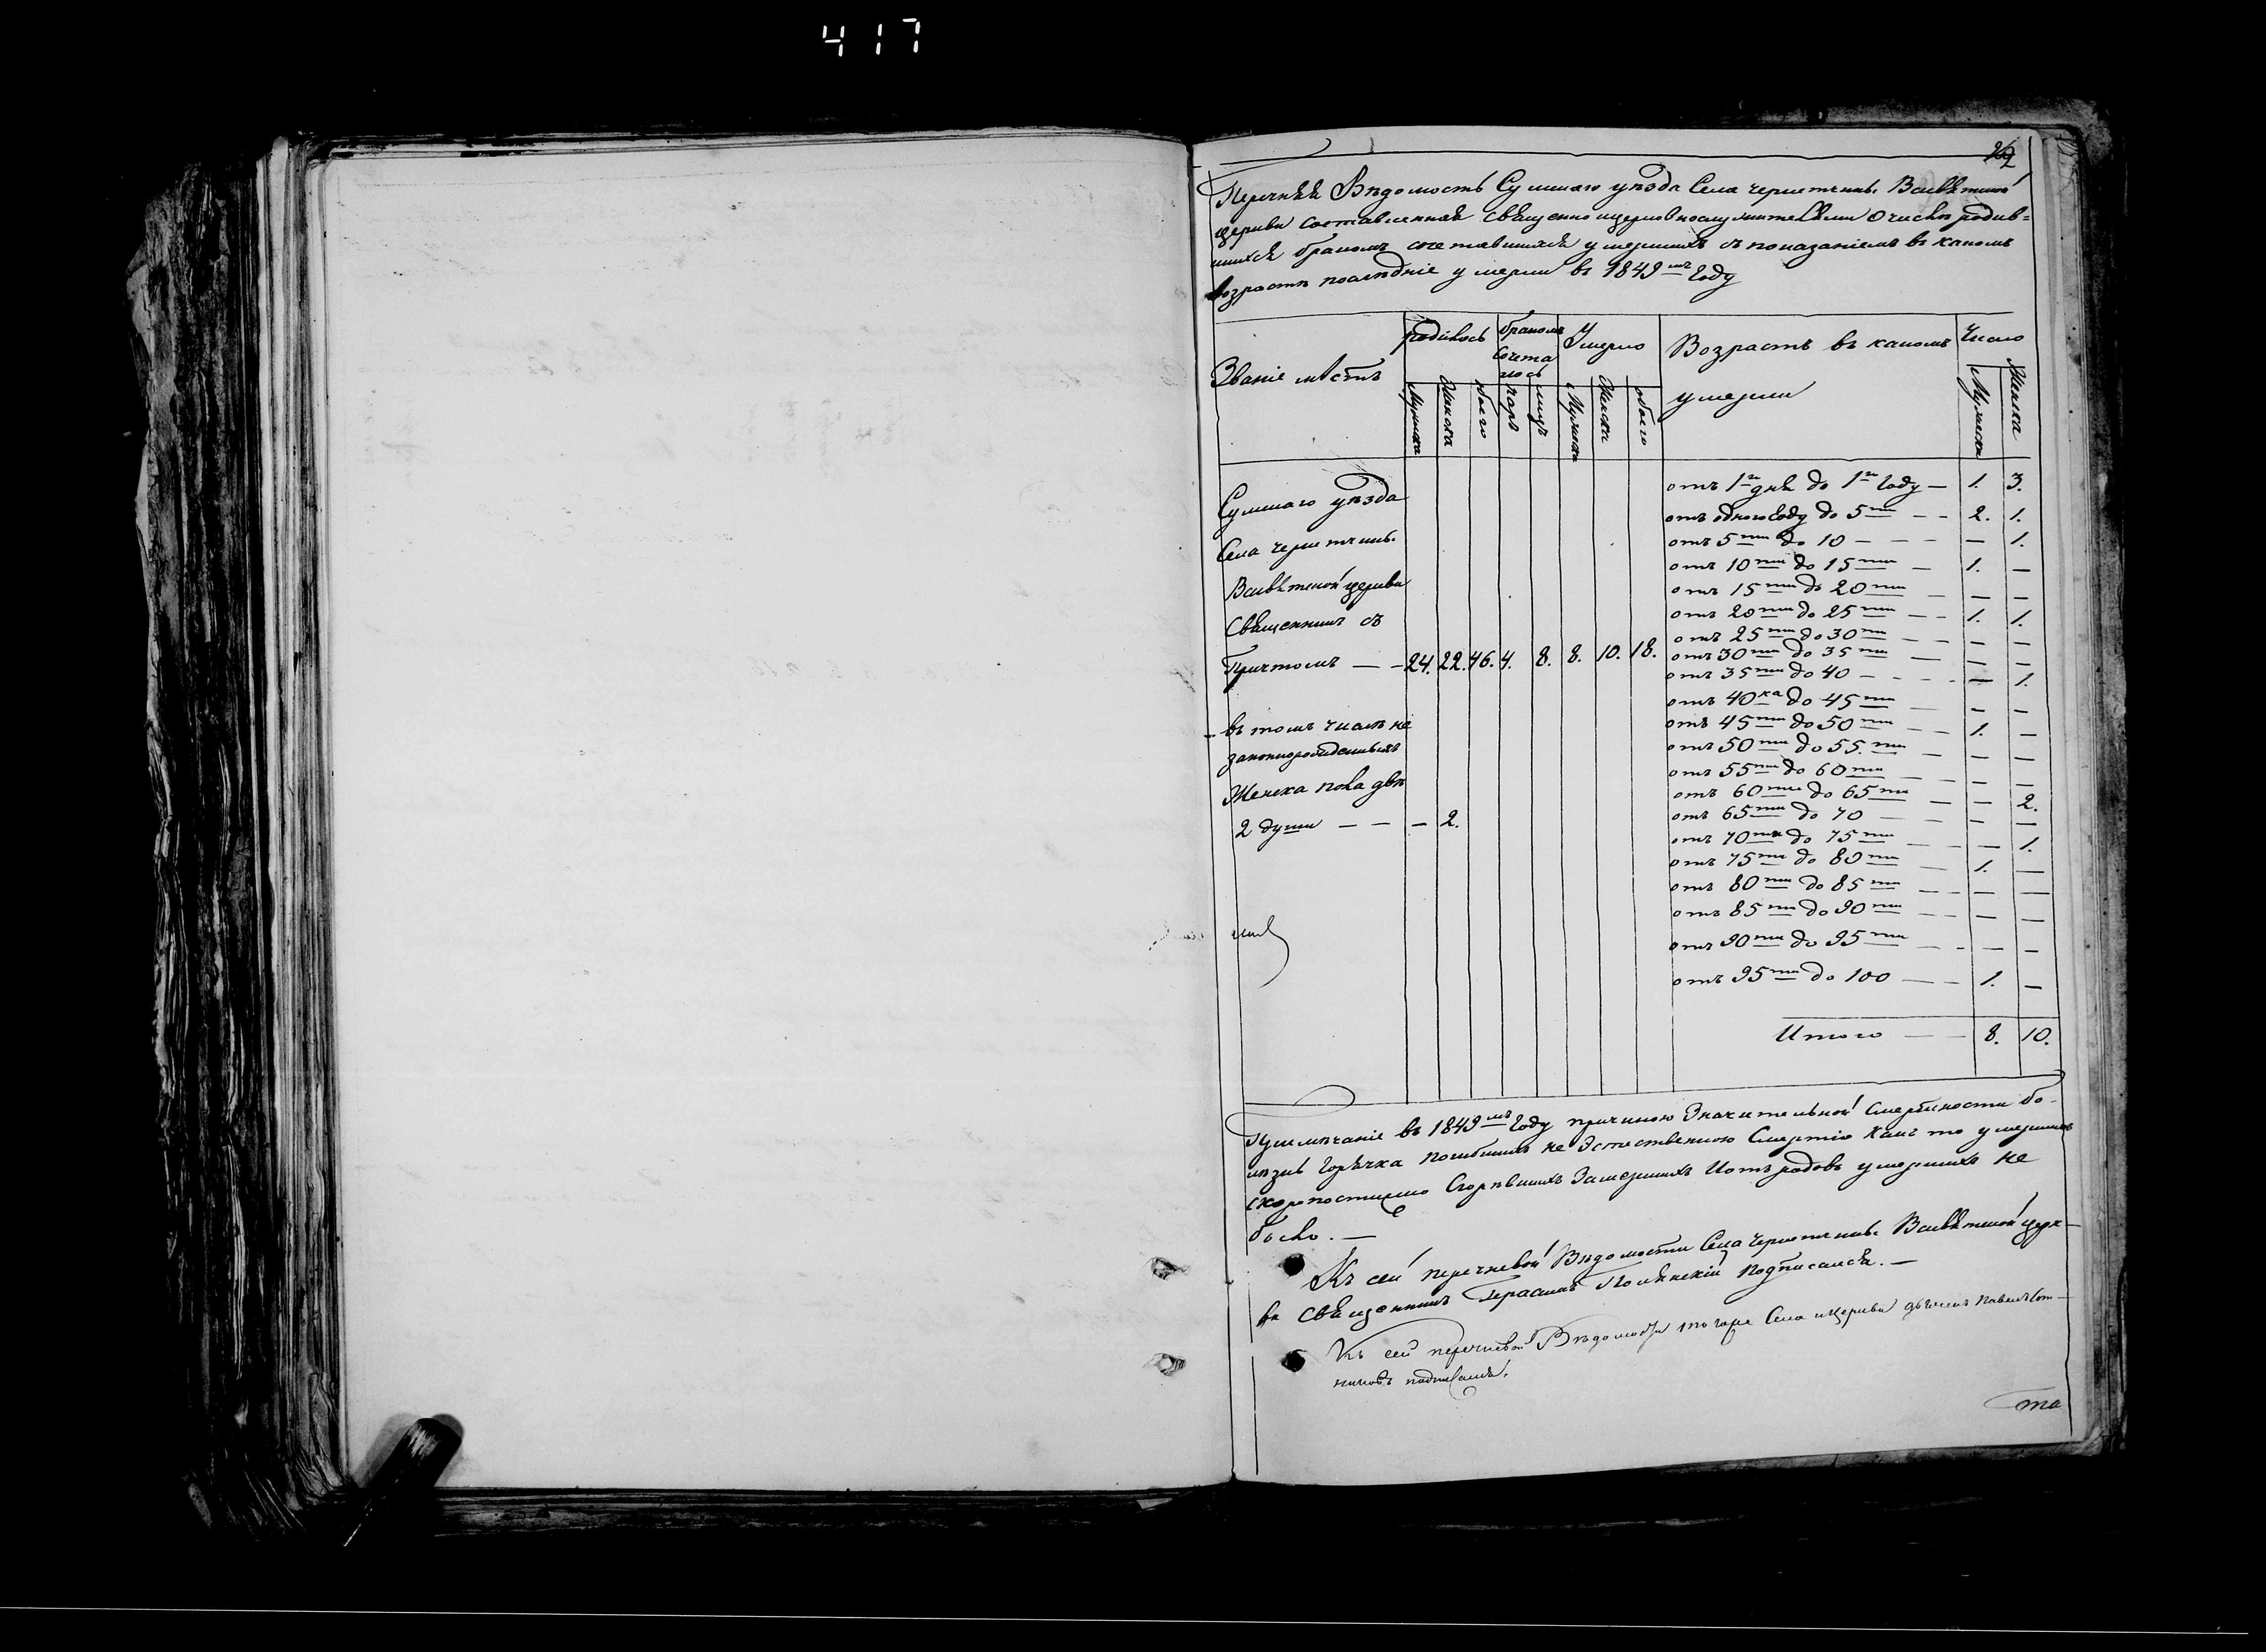 417
Перечнѣя Вѣдомость Сумшаго уѣзда Села чернетчинь. Всивѣтной
церкви составленная священноицерковнослужителями о числѣ родив=
шихся бракомъ сочетавшихся умершихъ съ показаніемъ въ какомъ
возрастѣ послѣдніе умерли въ 1849мъ Году
Званіе мѣстъ
родилось
бракомъ сочета лось
Умерло
Возрастъ въ какомъ умерли
Число
Мужска Женска обоего паръ лицъ Мужска Женска обоего Мужска Женска
отъ 1го дня до 1го Году — 1. 3.
Сумшаго уѣзда
отъ одного Году до 5ти — — 2. 1.
Села чернетчинь.
отъ 5ти до 10 — — — — 1.
отъ 10ти до 15ти — 1. —
Всивѣтной церкви
отъ 15ти до 20ти — — —
отъ 20ти до 25ти — — 1. 1.
Священникъ съ
отъ 25ти до 30ти — — — —
Притчомъ — — 24. 22. 46. 4. 8. 8. 10. 18.
отъ 30ти до 35ти — — —
отъ 35ти до 40 — — — — — 1.
отъ 40ка до 45ти — — —
въ томъ числѣ не
отъ 45ти до 50ти — — 1. —
законнорожденныхъ
отъ 50ти до 55.ти — — —
отъ 55ти до 60ти — — — —
Женска пола двѣ
отъ 60ти до 65ти — — 2.
2 души — — — 2.
отъ 65ти до 70 — — — —
отъ 70ти до 75ти — — — 1.
отъ 75ти до 80ти — 1. —
отъ 80ти до 85ти — — — —
отъ 85ти до 90ти — — — —
отъ 90ти до 95ти — — — —
отъ 95ти до 100 — — 1. —
Итого — — 8. 10.
Примѣчаніе въ 1849мъ Году причиною Значительной Смертности бо-
лѣзнь Горячка погибшихъ не Эстественною Смертію какъ то умершихъ
скоропостижно Сгорѣвшихъ Замерзшихъ Иотъ родовъ умершихъ не
было. —
Къ сей перечневой Вѣдомости Села чернетчинь. Всивѣтной церк-
ви Священникъ Герасимъ Полянскій Подписался. —
Къ сей перечневой Вѣдомости тогоже Села ицеркви дьячекъ Павелъ Сот-
никовъ подписался.